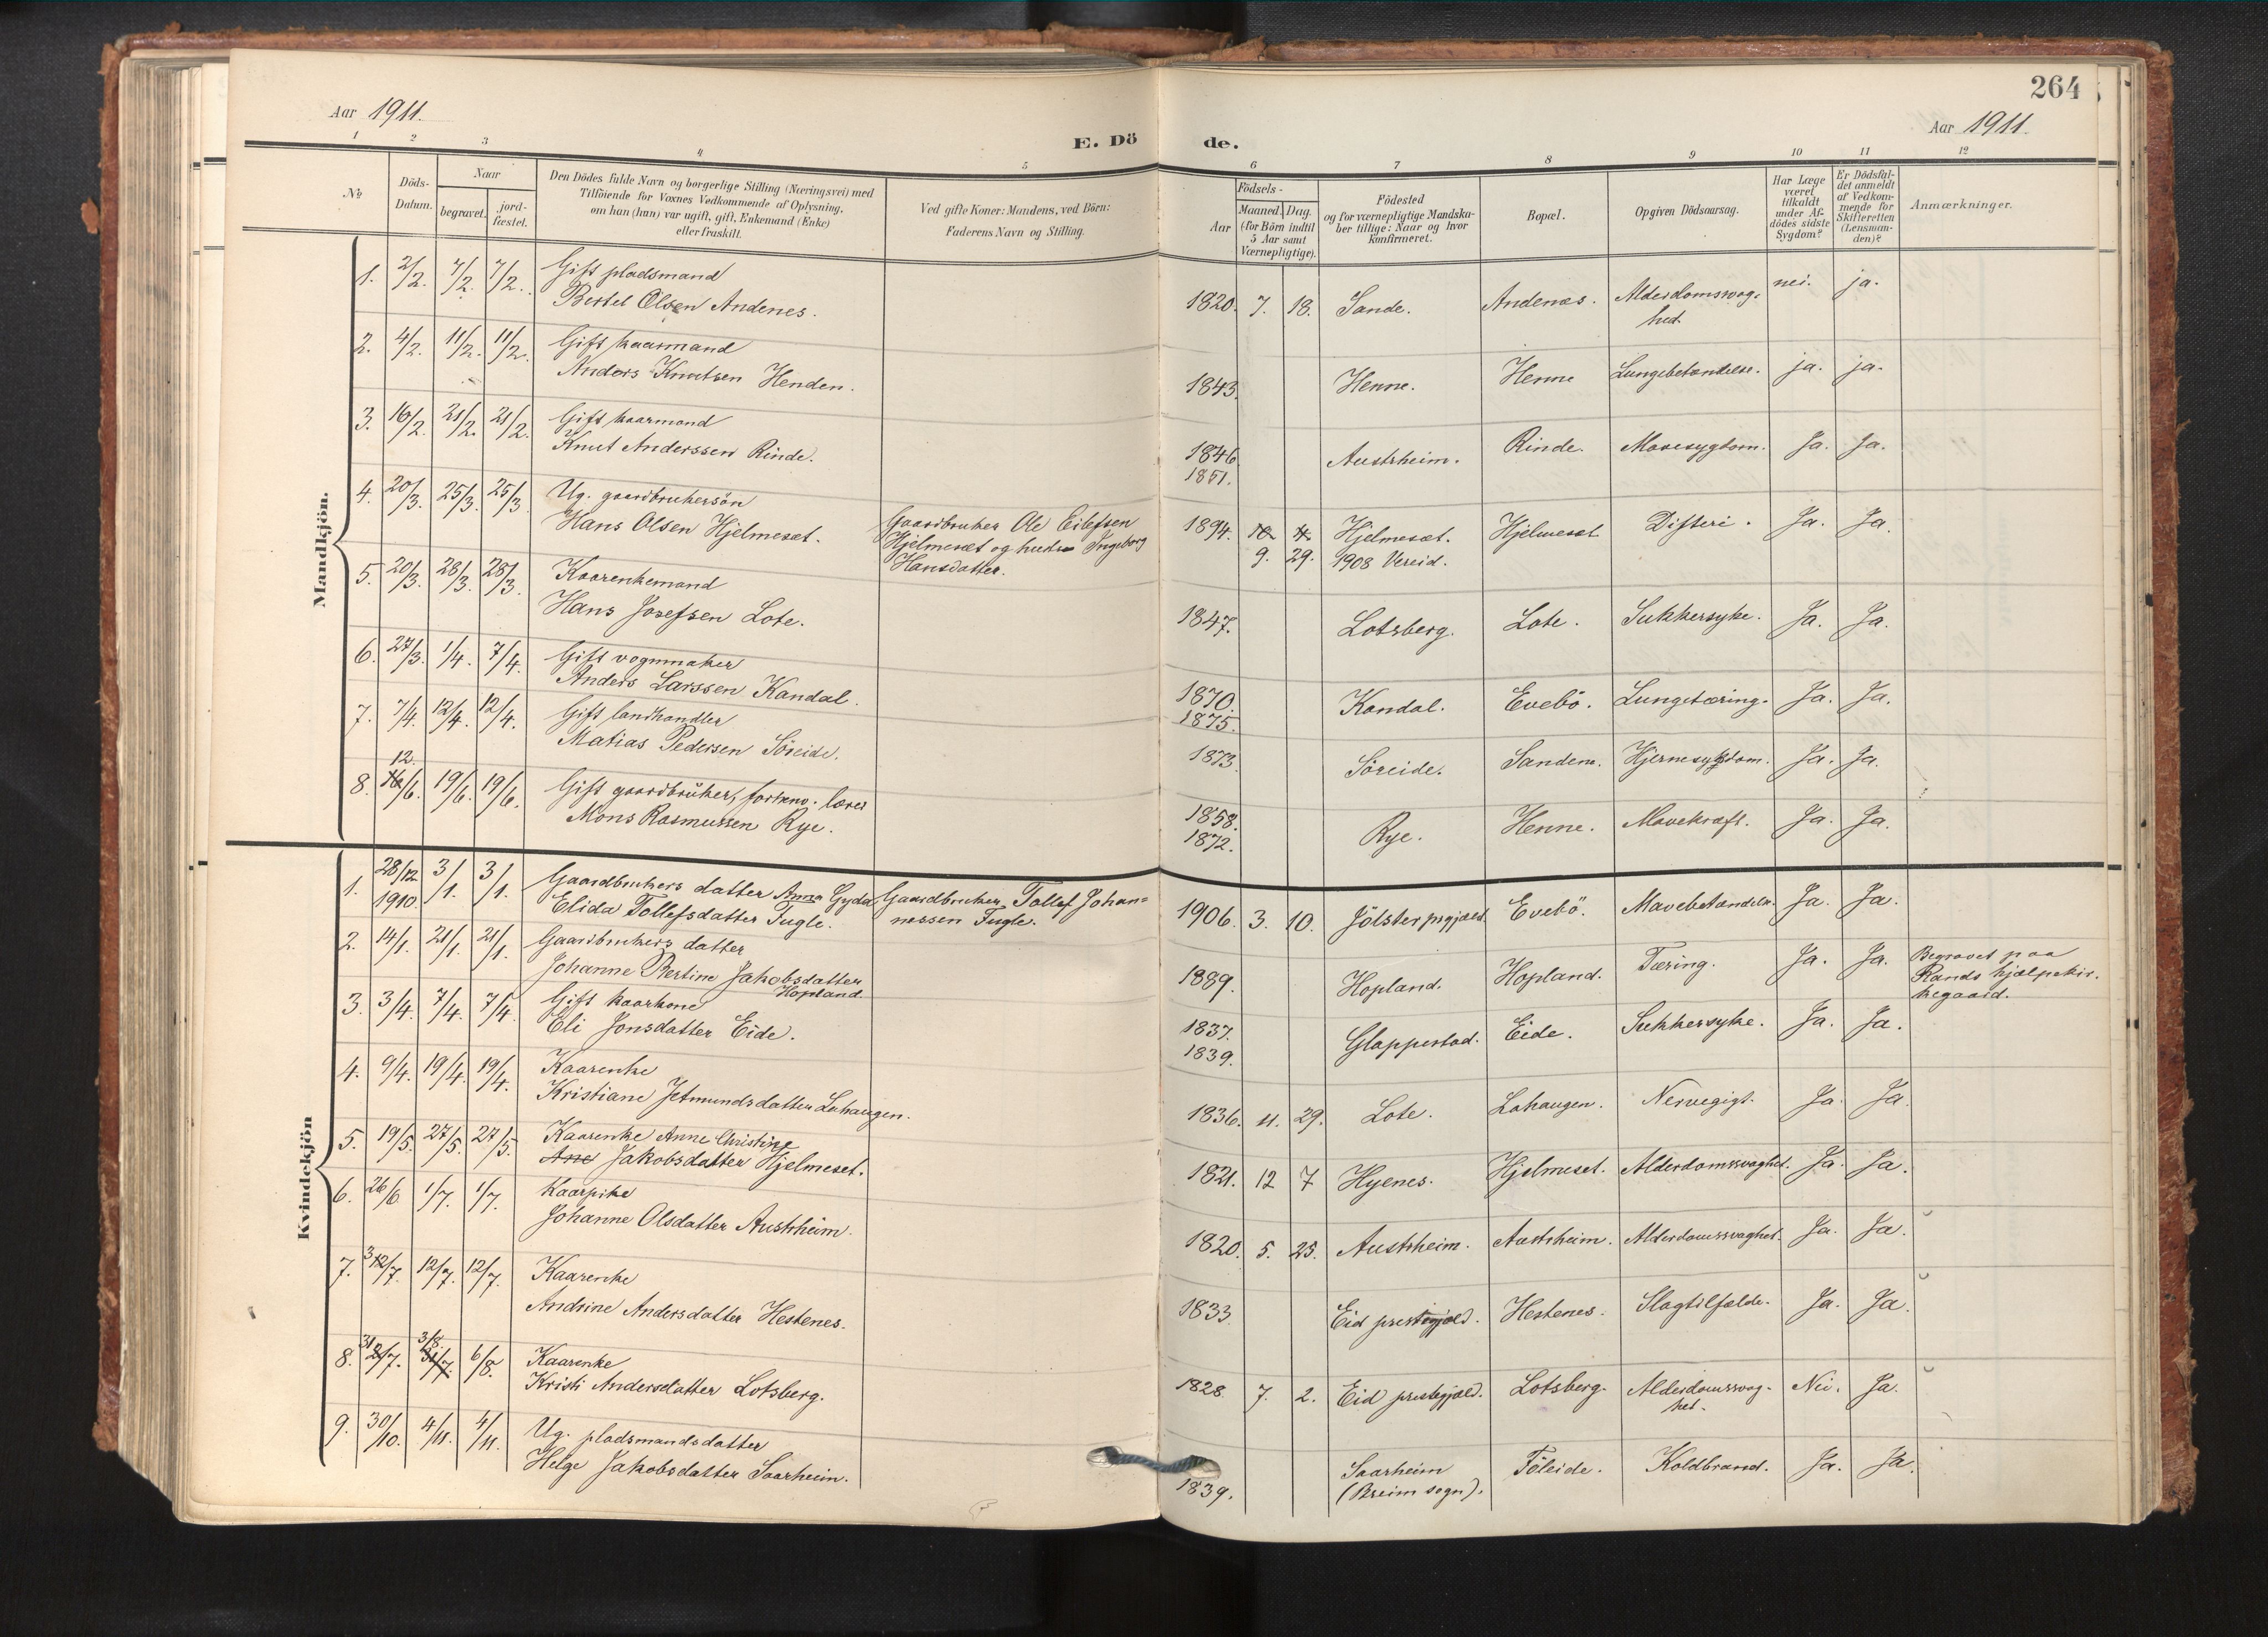 264
Aar 1911.
Aar 1911.
E. Dö
de.
1 2 3 4 5 6 7 8 9 10 11 12
No
Döds-Datum.
Naar
begravet.
jord-fæstet.
Den Dödes fulde Navn og borgerlige Stilling (Næringsvei) med
Tilföiende for Voxnes Vedkommende af Oplysning,
om han (hun) var ugift, gift, Enkemand (Enke)
eller fraskilt.
Ved gifte Koner: Mandens, ved Börn:
Faderens Navn og Stilling.
Födsels-
Aar
Maaned.
Dag.
(for Börn indtil
5 Aar samt
Værnepligtige).
Födested
og for værnepligtige Mandska-
ber tillige: Naar og hvor
Konfirmeret.
Bopæl.
Opgiven Dödsaarsag.
Har Læge
været
tilkaldt
under Af-
dödes sidste
Sygdom?
Er Dödsfal-
det anmeldt
af Vedkom-
mende for
Skifteretten
(Lensman-
den)?
Anmærkninger.
Mandkjön.
1. 2/2. 7/2. 7/2. Gift pladsmand
Bertel Olsen Andenes.
1820. 7. 18. Sande. Andenes. Alderdomssvag-
hed. nei. ja.
2. 4/2. 11/2. 11/2. Gift kaarmand
Anders Knutsen Henden.
1843. Henne. Henne Lungebetændelse. ja. ja.
3. 16/2. 21/2. 21/2. Gift kaarmand
Knut Anderssen Rinde.
1846
1851. Austrheim. Rinde. Mavesygdom. Ja. Ja.
4. 20/3. 25/3. 25/3 Ug. gaardbrukersön
Hans Olsen Hjelmeset.
Gaardbruker Ole Eilefsen
Hjelmeset og hustru Ingeborg
Hansdatter.
1894. Hjelmeset. Hjelmeset Difteri. Ja. Ja.
9. 29. 1908 Vereid.
5. 20/3. 28/3. 28/3. Kaarenkemand
Hans Josefsen Lote.
1847. Lotsberg. Lote. Sukkersyke. Ja. Ja.
6. 27/3. 1/4. 7/4. Gift vognmaker
Anders Larssen Kandal.
1870.
1875. Kandal. Evebö. Lungetæring. Ja. Ja.
7. 7/4. 12/4. 12/4. Gift landhandler
Matias Pedersen Söreide.
1873. Söreide. Sandene. Hjernesygdom. Ja. Ja.
8. 12./6. 19/6. 19/6. Gift gaardbruker, forhenv. lærer
Mons Rasmussen Rye.
1858.
1872. Rye. Henne. Mavekræft. Ja. Ja.
Kvindekjön
1. 28/12 1910. 3/1. 3/1. Gaardbrukers datter Anna Gyda
Elida Tollefsdatter Fugle.
Gaardbruker Tollef Johan-
nessen Fugle.
1906. 3. 10. Jölster prgjæld. Evebö. Mavebetændelse. Ja. Ja.
2. 14/1. 21/1. 21/1. Gaardbrukers datter
Johanne Bertine Jakobsdatter
Hopland.
1889. Hopland. Hopland. Tæring. Ja. Ja. Begravet paa
Rands hjælpekir-
kegaard.
3. 3/4. 7/4. 7/4. Gift kaarkone
Eli Jonsdatter Eide.
1837.
1839. Gloppestad. Eide. Sukkersyke. Ja. Ja.
4. 9/4. 19/4. 19/4. Kaarenke
Kristiane Jetmundsdatter Lohaugen.
1836. 11. 29. Lote. Lohaugen. Nervegigt. Ja. Ja.
5. 19/5. 27/5. 27/5. Kaarenke Anne Christine
Ane Jakobsdatter Hjelmeset.
1821. 12 7 Hyenes. Hjelmeset. Alderdomssvaghet. Ja. Ja.
6. 26/6 1/7. 1/7. Kaarpike
Johanne Olsdatter Austrheim.
1820. 5. 25. Austrheim. Austrheim. Alderdomssvaghet. Ja. Ja.
7. 3/7. 12/7. 12/7. Kaarenke
Andrine Andersdatter Hestenes.
1833. Eid prestegjæld. Hestenes. Slagtilfælde. Ja. Ja.
8. 31/7. 3/8. 6/8. Kaarenke
Kristi Andersdatter Lotsberg.
1828. 7. 2. Eid prestegjæld. Lotsberg. Alderdomssvag-
het. Nei. Ja.
9. 30/10. 4/11. 4/11. Ug. pladsmandsdatter
Helge Jakobsdatter Saarheim.
1839. Saarheim
(Breim sogn). Föleide. Koldbrand. Ja. Ja.